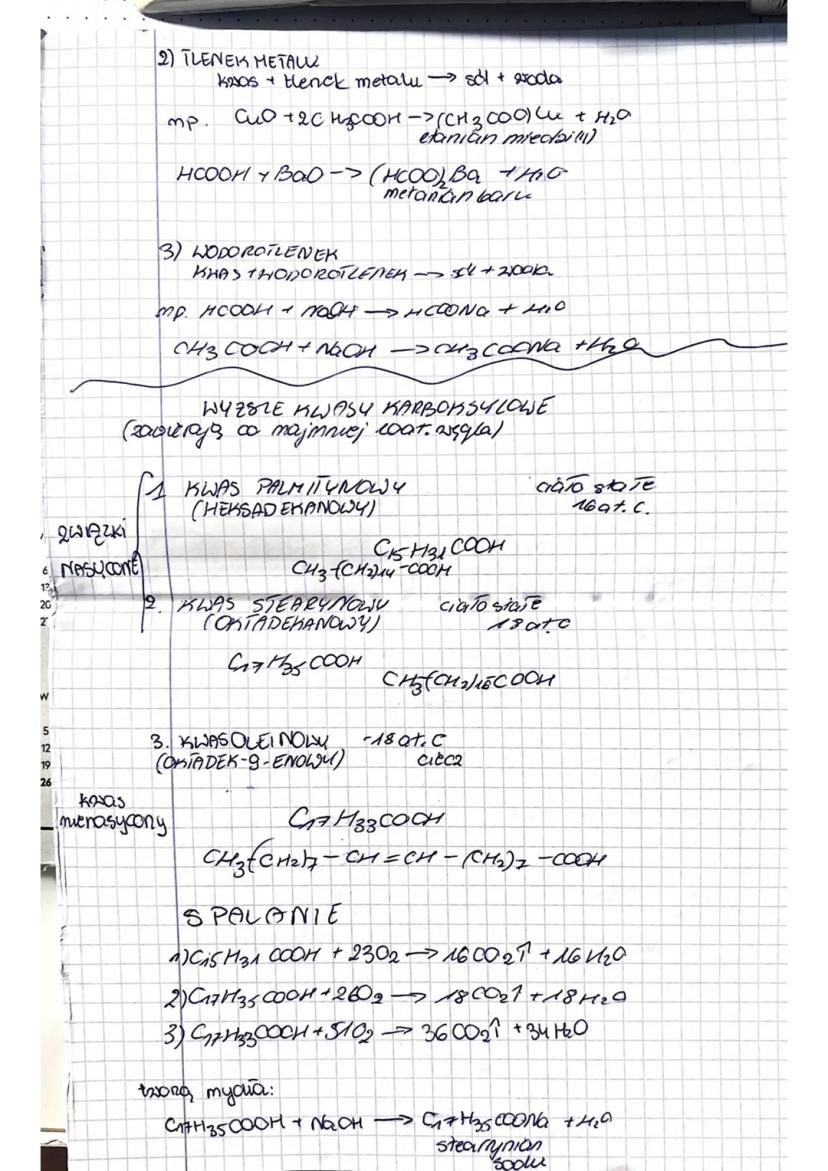 2) TLENEK METALU
kwas + tlenek metalu → sól + woda
np. CuO + 2CH3COOH → (CH3COO)Cu + H2O
etanian miedzi(II)
HCOOH + BaO → (HCOO)2Ba + H2O
metanian baru
3) WODOROTLENEK
KWAS + WODOROTLENEK → sól + woda
np. HCOOH + NaOH → HCOONa + H2O
CH3COOH + NaOH → CH3COONa + H2O
WYŻSZE KWASY KARBOKSYLOWE
(zawierają co najmniej 10 at. węgla)
1 KWAS PALMITYNOWY ciało stałe
(HEKSADEKANOWY) 16 at. C.
ZWIĄZKI
NASYCONE
C15H31COOH
CH3-(CH2)14-COOH
2. KWAS STEARYNOWY ciało stałe
(OKTADEKANOWY) 18 at. C
C17H35COOH
CH3(CH2)16COOH
3. KWAS OLEINOWY -18 at. C
(OKTADEK-9-ENOWY) ciecz
kwas
nienasycony
C17H33COOH
CH3-(CH2)7-CH=CH-(CH2)7-COOH
SPALANIE
1) C15H31COOH + 23O2 → 16CO2↑ + 16H2O
2) C17H35COOH + 26O2 → 18CO2↑ + 18H2O
3) C17H33COOH + 51O2 → 36CO2↑ + 34H2O
tworzą mydła:
C17H35COOH + NaOH → C17H35COONa + H2O
stearynian
sodu
6
13
20
2
W
5
12
19
26